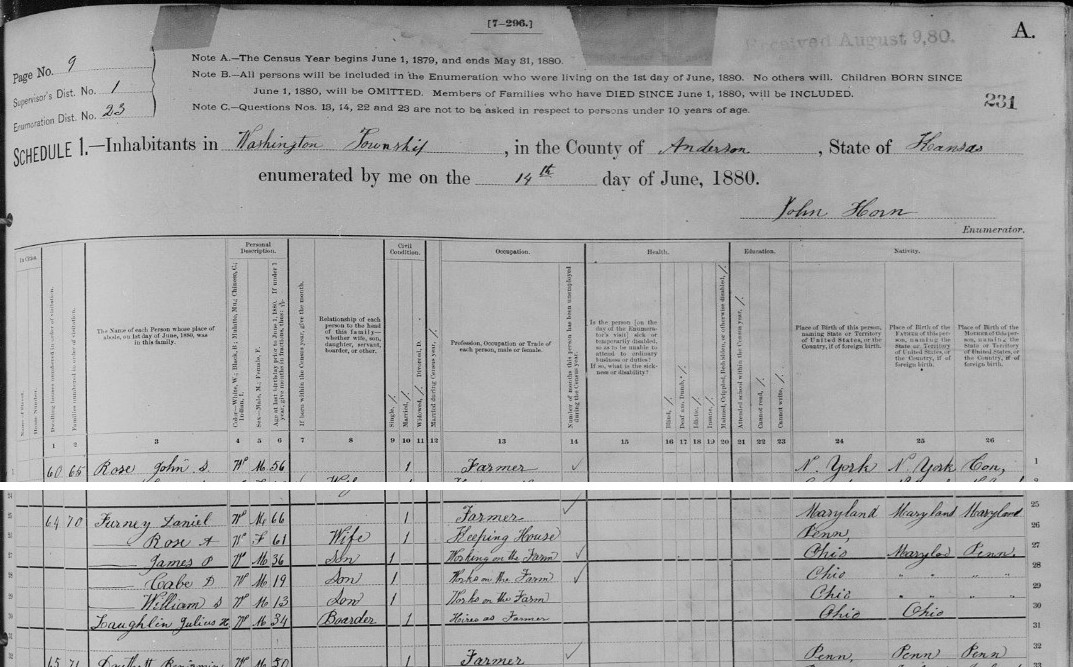 [7-296.]
A.
Received August 9, 80.
Page No. 9
Supervisor's Dist. No. 1
Enumeration Dist. No. 23
Note A.—The Census Year begins June 1, 1879, and ends May 31, 1880.
Note B.—All persons will be included in the Enumeration who were living on the 1st day of June, 1880. No others will. Children BORN SINCE
June 1, 1880, will be OMITTED. Members of Families who have DIED SINCE June 1, 1880, will be INCLUDED.
Note C.—Questions Nos. 13, 14, 22 and 23 are not to be asked in respect to persons under 10 years of age.
231
SCHEDULE 1.—Inhabitants in Washington Township, in the County of Anderson, State of Kansas
enumerated by me on the 14th day of June, 1880.
John Horn
Enumerator.
In Cities.
Personal Description.
Civil Condition.
Occupation.
Health.
Education.
Nativity.
Name of Street.
House Number.
Dwelling houses numbered in order of visitation.
Families numbered in order of visitation.
The Name of each Person whose place of abode, on 1st day of June, 1880, was in this family.
Color—White, W.; Black, B.; Mulatto, Mu.; Chinese, C.; Indian, I.
Sex—Male, M.; Female, F.
Age at last birthday prior to June 1, 1880. If under 1 year, give months in fractions, thus:
If born within the Census year, give the month.
Relationship of each person to the head of this family—whether wife, son, daughter, servant, boarder, or other.
Single, /
Married, /
Widowed, / Divorced, D.
Married during Census year, /
Profession, Occupation or Trade of each person, male or female.
Number of months this person has been unemployed during the Census year.
Is the person [on the day of the Enumerator's visit] sick or temporarily disabled, so as to be unable to attend to ordinary business or duties? If so, what is the sickness or disability?
Blind, /
Deaf and Dumb, /
Idiotic, /
Insane, /
Maimed, Crippled, Bedridden, or otherwise disabled, /
Attended school within the Census year, /
Cannot read, /
Cannot write, /
Place of Birth of this person, naming State or Territory of United States, or the Country, if of foreign birth.
Place of Birth of the Father of this person, naming the State or Territory of United States, or the Country, if of foreign birth.
Place of Birth of the Mother of this person, naming the State or Territory of United States, or the Country, if of foreign birth.
1 2 3 4 5 6 7 8 9 10 11 12 13 14 15 16 17 18 19 20 21 22 23 24 25 26
60 65 Rose John S. W M 56 1 Farmer N. York N. York Con, 1
64 70 Furney Daniel W M 66 1 Farmer Maryland Maryland Maryland 25
Rose A W F 61 Wife 1 Keeping House Penn, 26
James P W M 36 Son 1 Working on the Farm Ohio Marylan Penn, 27
Cabe D W M 19 Son 1 Works on the Farm Ohio " " " " 28
William S W M 13 Son 1 Works on the Farm Ohio " " " " 29
Laughlin Julius H W M 34 Boarder 1 Hires as Farmer Ohio Ohio 30
31
32
65 71 Benjamin W M 50 Farmer Penn, Penn Penn 33